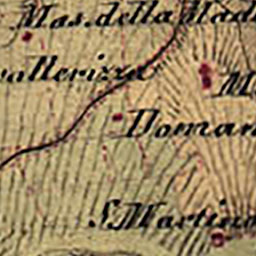 Mas. della Mad
vallerizza
M
Doman
S. Martino